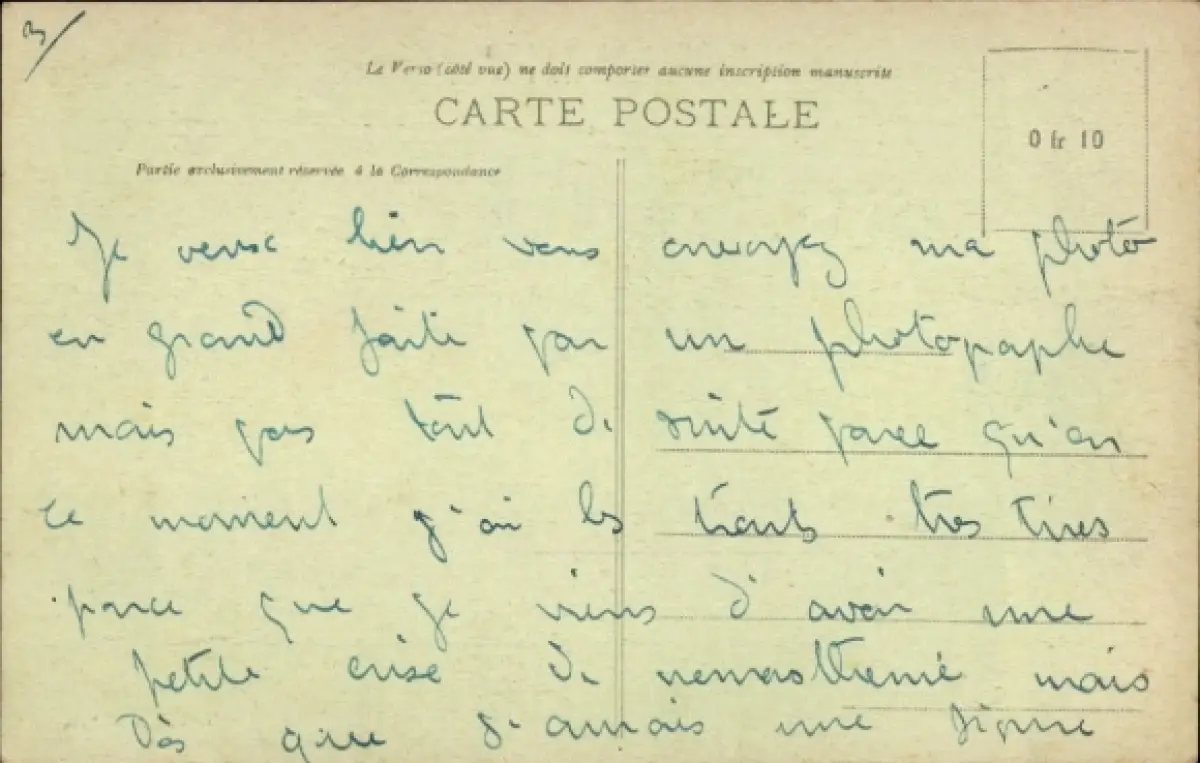 3/
Le Verso (côté vue) ne doit comporter aucune inscription manuscrite
CARTE POSTALE
0 fr 10
Partie exclusivement réservée à la Correspondance
Je veux bien vous envoyez ma photo
en grand faite par un photographe
mais pas tout de suite parce qu'en
ce moment j'ai les traits tres tires
parce que je viens d'avoir une
petite crise de neurasthenie mais
Dès que j'aurais une